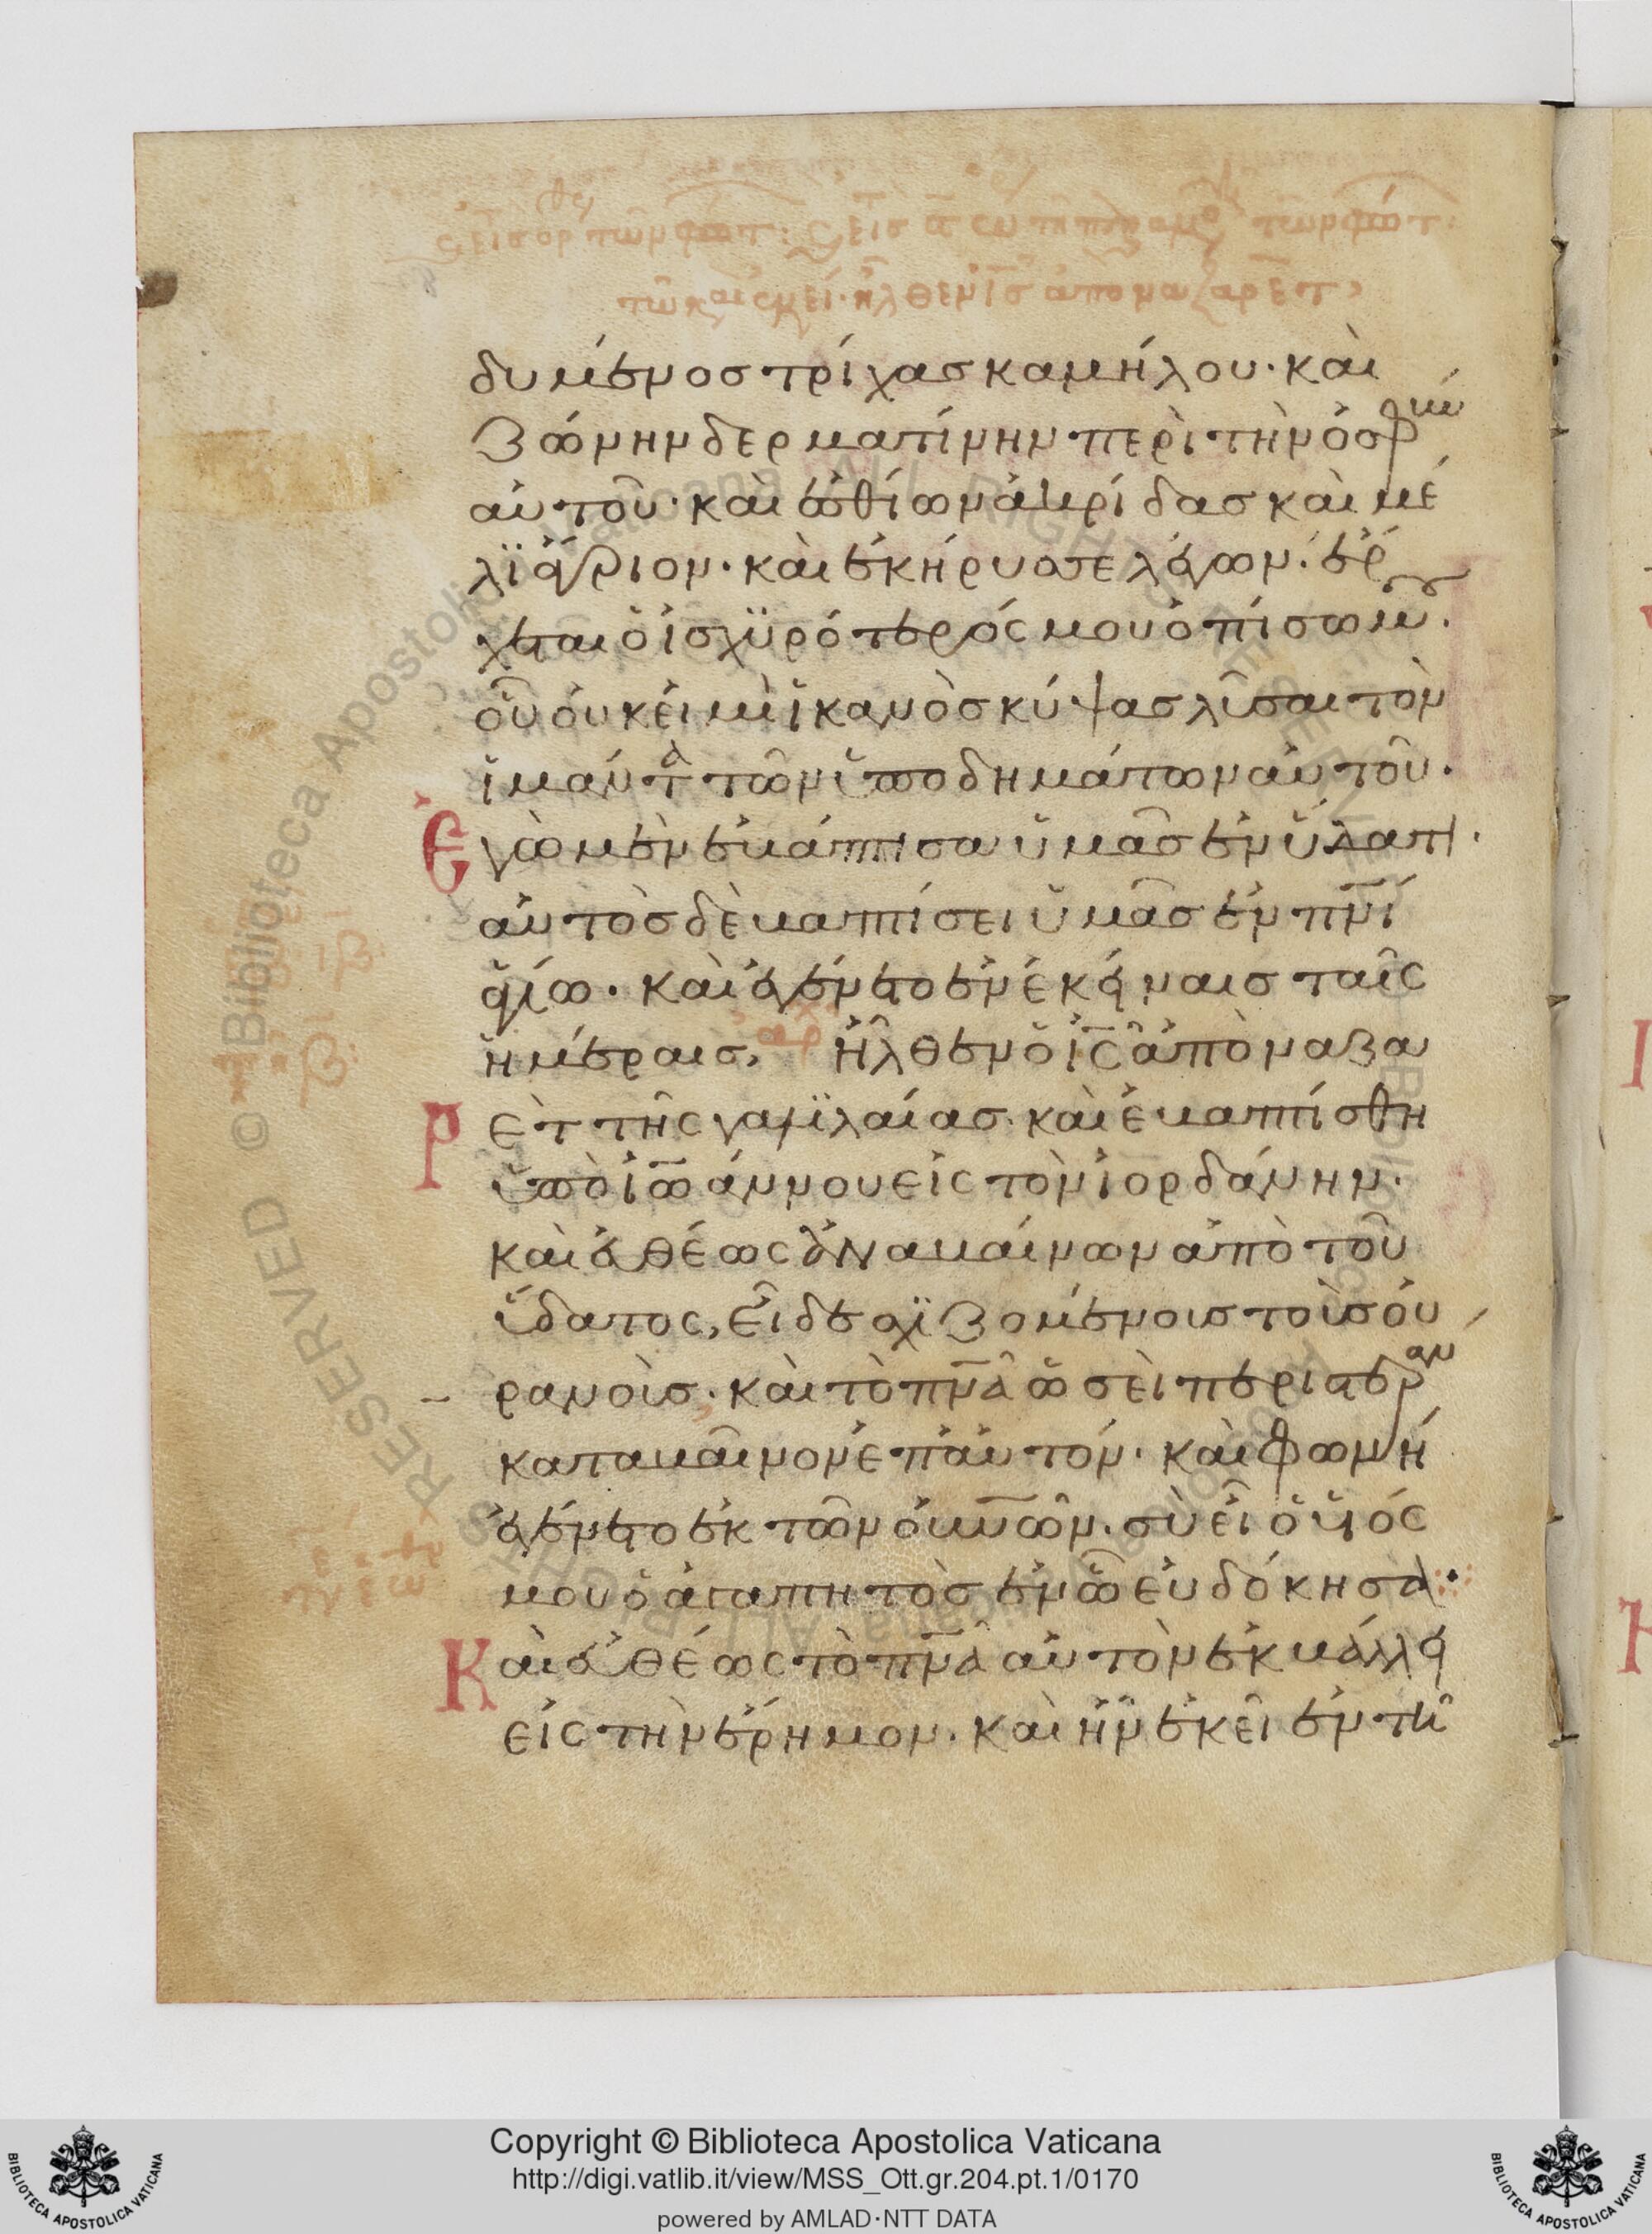 δυμένος τρίχας καμήλου· καὶ
ζώνην δερματίνην περὶ τὴν ὀσφὺν
αὐτοῦ· καὶ ἐσθίων ἀκρίδας καὶ μέ
λϊ ἄγριον· καὶ ἐκήρυσσε λέγων· ἔρ
χεται ὁ ἰσχϋρότερός μου ὀπίσω μου·
οὗ οὐκ εἰμὶ ἱκανὸς κύψας λῦσαι τὸν
ἱμάντα τῶν ὑποδημάτων αὐτοῦ·
Ἐγὼ μὲν ἐβάπτισα ὑμᾶς ἐν ὕδατι·
αὐτὸς δὲ βαπτίσει ὑμᾶς ἐν πνι
ἁγίω· καὶ ἐγένετο ἐν ἐκείναις ταῖς
ἡμέραις, ἦλθεν ὁ ις ἀπὸ ναζα
ρὲτ τῆς γαλϊλαίας· καὶ ἐβαπτίσθη
ὑπὸ ἰωάννου εἰς τὸν ἰορδάνην·
καὶ εὐθέως ἀναβαίνων ἀπὸ τοῦ
ὕδατος, εἶδε σχϊζομένους τοὺς οὐ
ρανοὺς· καὶ τὸ πνα ὡσεὶ περιστερὰν
καταβαῖνον ἐπ' αὐτόν· καὶ φωνὴ
ἐγένετο ἐκ τῶν οὐνῶν· σὺ εἶ ὁ υἱός
μου ὁ ἀγαπητὸς ἐν ὧ εὐδόκησα·
Καὶ εὐθέως τὸ πνα αὐτὸν ἐκβάλλει
εἰς τὴν ἔρημον· καὶ ἦν ἐκεῖ ἐν τῆ
Copyright © Biblioteca Apostolica Vaticana
http://digi.vatlib.it/view/MSS_Ott.gr.204.pt.1/0170
powered by AMLAD·NTT DATA
BIBLIOTECA APOSTOLICA VATICANA
BIBLIOTECA APOSTOLICA VATICANA